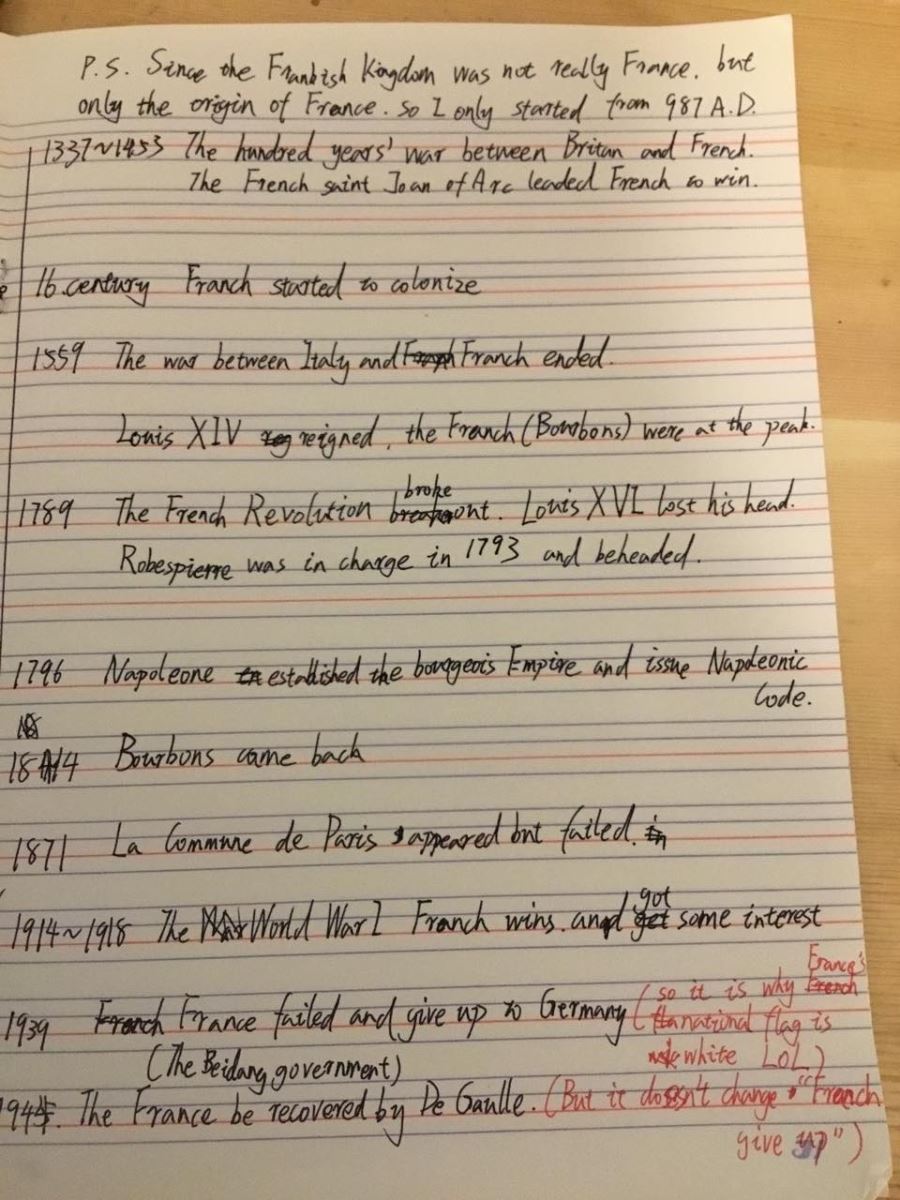 P.S. Since the Frankish Kingdom was not really France, but
only the origin of France. so I only started from 987 A.D.
1337~1453 The hundred years' war between Britan and French.
The French saint Joan of Arc leaded French to win.
16 century Franch started to colonize
1559 The war between Italy and Franch ended.
Louis XIV reigned, the French (Bourbons) were at the peak.
1789 The French Revolution broke out. Louis XVI lost his head.
Robespierre was in charge in 1793 and beheaded.
1796 Napoleone established the bourgeois Empire and issue Napoleonic
Code.
1814 Bourbons came back
1871 La Commune de Paris appeared but failed.
1914~1918 The World War I Franch wins. and got some interest
1939 France failed and give up to Germany (so it is why France's
national flag is
white LOL)
(The Beidang government)
1944. The France be recovered by De Gaulle. (But it doesn't change "French
give up")